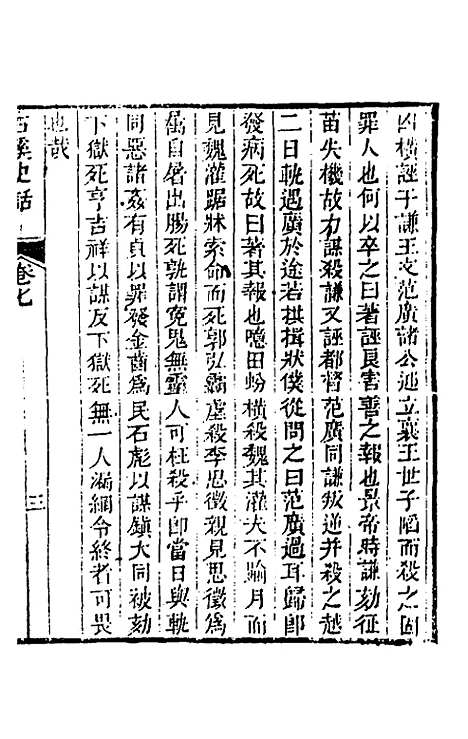 因橫誣于謙王文范廣諸公迎立襄王世子陷而殺之固
罪人也何以卒之曰著誣良害善之報也景帝時謙劾征
苗失機故力謀殺謙又誣都督范廣同謙叛逆并殺之越
二日軏遇廣於途若拱揖狀僕從問之曰范廣過耳歸即
發病死故曰著其報也噫田蚡橫殺魏其灌夫不踰月而
見魏灌踞牀索命而死郭弘霸虐殺李思徵親見思徵爲
厲自屠出腸死孰謂寃鬼無靈人可枉殺乎卽當日與軏
同惡諸姦有貞以罪發金齒爲民石彪以謀鎮大同被劾
下獄死亨吉祥以謀反下獄死無一人漏網令終者可畏
也哉
石溪史話
卷七
三